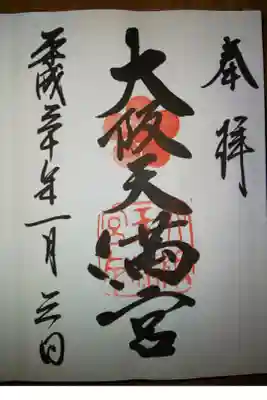 奉拝
大阪天満宮
平成三十年一月三日